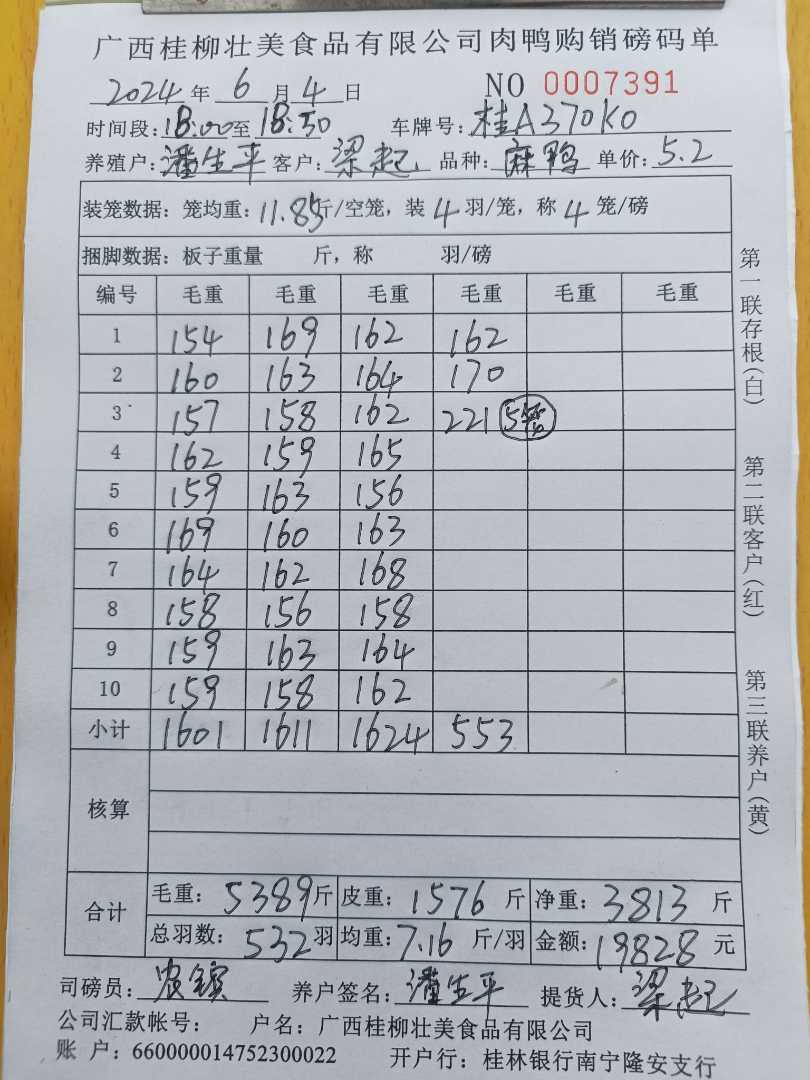 广西桂柳壮美食品有限公司肉鸭购销磅码单
2024年6月4日 NO 0007391
时间段:18:00至18:30 车牌号:桂A370K0
养殖户:潘生平 客户:梁起 品种:麻鸭 单价:5.2
装笼数据:笼均重:11.85斤/空笼,装4羽/笼,称4笼/磅
捆脚数据:板子重量 斤,称 羽/磅
编号 毛重 毛重 毛重 毛重 毛重 毛重
1 154 169 162 162
2 160 163 164 170
3 157 158 162 221 5笼
4 162 159 165
5 159 163 156
6 169 160 163
7 164 162 168
8 158 156 158
9 159 163 164
10 159 158 162
小计 1601 1611 1624 553
核算
合计 毛重:5389斤 皮重:1576斤 净重:3813斤
总羽数:532羽 均重:7.16斤/羽 金额:19828元
司磅员:农镔 养户签名:潘生平 提货人:梁起
公司汇款帐号: 户名:广西桂柳壮美食品有限公司
账 户:660000014752300022 开户行:桂林银行南宁隆安支行
第一联存根(白) 第二联客户(红) 第三联养户(黄)